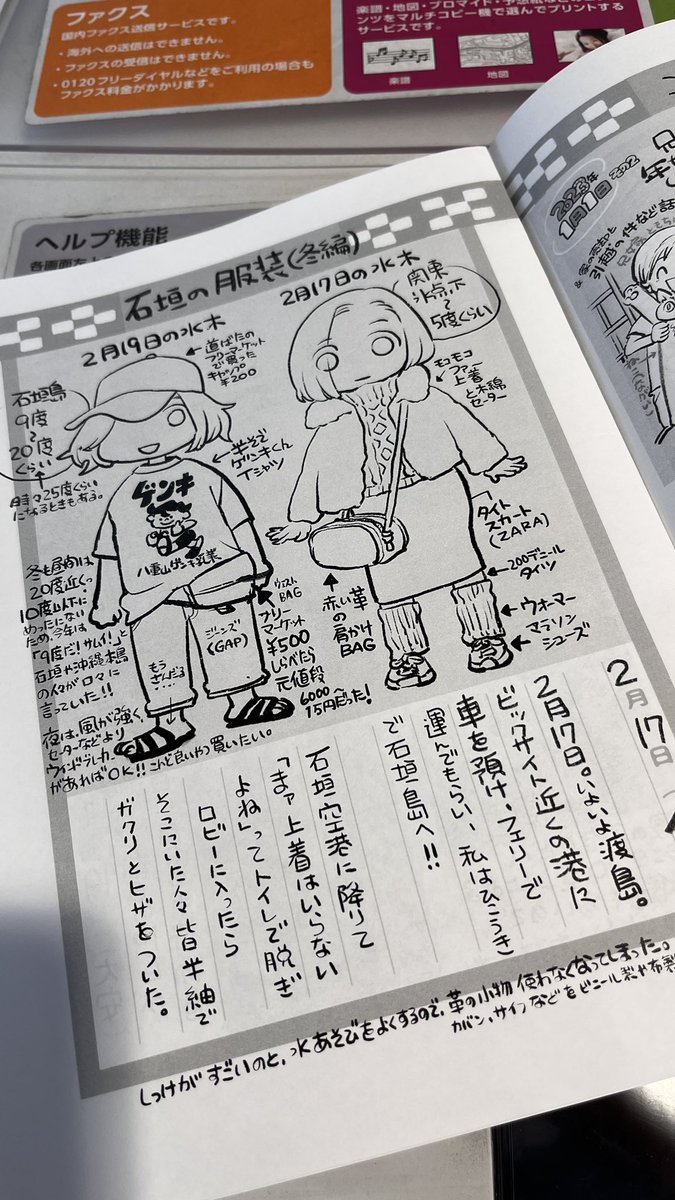 ファクス
国内ファクス送信サービスです。
・海外への送信はできません。
・ファクスの受信はできません。
・0120フリーダイヤルなどをご利用の場合も
ファクス料金がかかります。
楽譜・地図・ブロマイド・予想紙など
ンツをマルチコピー機で選んでプリントする
サービスです。
楽譜
地図
ヘルプ機能
石垣の服装(冬編)
2月17日の水木
関東
氷点下
〜
5度くらい
モコモコ
ファー
上着
と木綿
セーター
タイト
スカート
(ZARA)
200デニール
タイツ
ウォーマー
マラソン
シューズ
赤い革
の
肩かけ
BAG
2月19日の水木
道ばたの
フリーマーケット
で買った
キャップ
¥200
石垣島
9度
〜
20度
くらい
時々25度くらい
になるときもある。
半そで
ゲンキくん
Tシャツ
ゲンキ
ウエスト
BAG
フリー
マーケット
¥500
しらべたら
元値段
6000〜
15円だった!
ジーンズ
(GAP)
もう
さんだる
冬も昼間は
20度近くっ
10度以下に
めったにない
ため、今年は
「9度だ!サムイ!」と
石垣や沖縄本島
の人々が口々に
言っていた!!
夜は、風が強く、
セーターなどより
ウィンドブレーカー
があればOK!!こんど良いやつ買いたい。
2月17日
2月17日。いよいよ渡島。
ビックサイト近くの港に
車を預け、フェリーで
運んでもらい、私はひこうき
で石垣島へ!!
石垣空港に降りて
「まァ上着はいらない
よね」ってトイレで脱ぎ
ロビーに入ったら
そこにいた人々皆半紬で
ガクリとヒザをついた。
しっけがすごいのと、水あそびをよくするので、革の小物使わなくなってしまった。
カバン、サイフなどをビニール製や布製
2023年
1月1日
その2
引越の件など